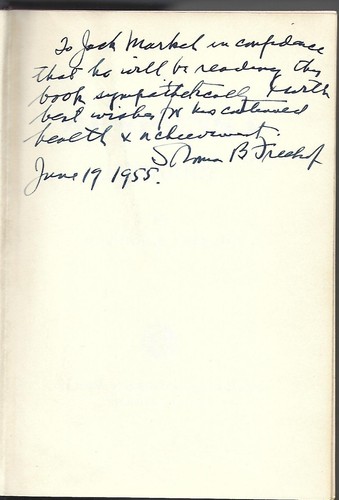 To Jack Markel in confidence
that he will be reading this
book sympathetically & with
best wishes for his continued
health & achievement.
Solomon B Freehof
June 19 1955.